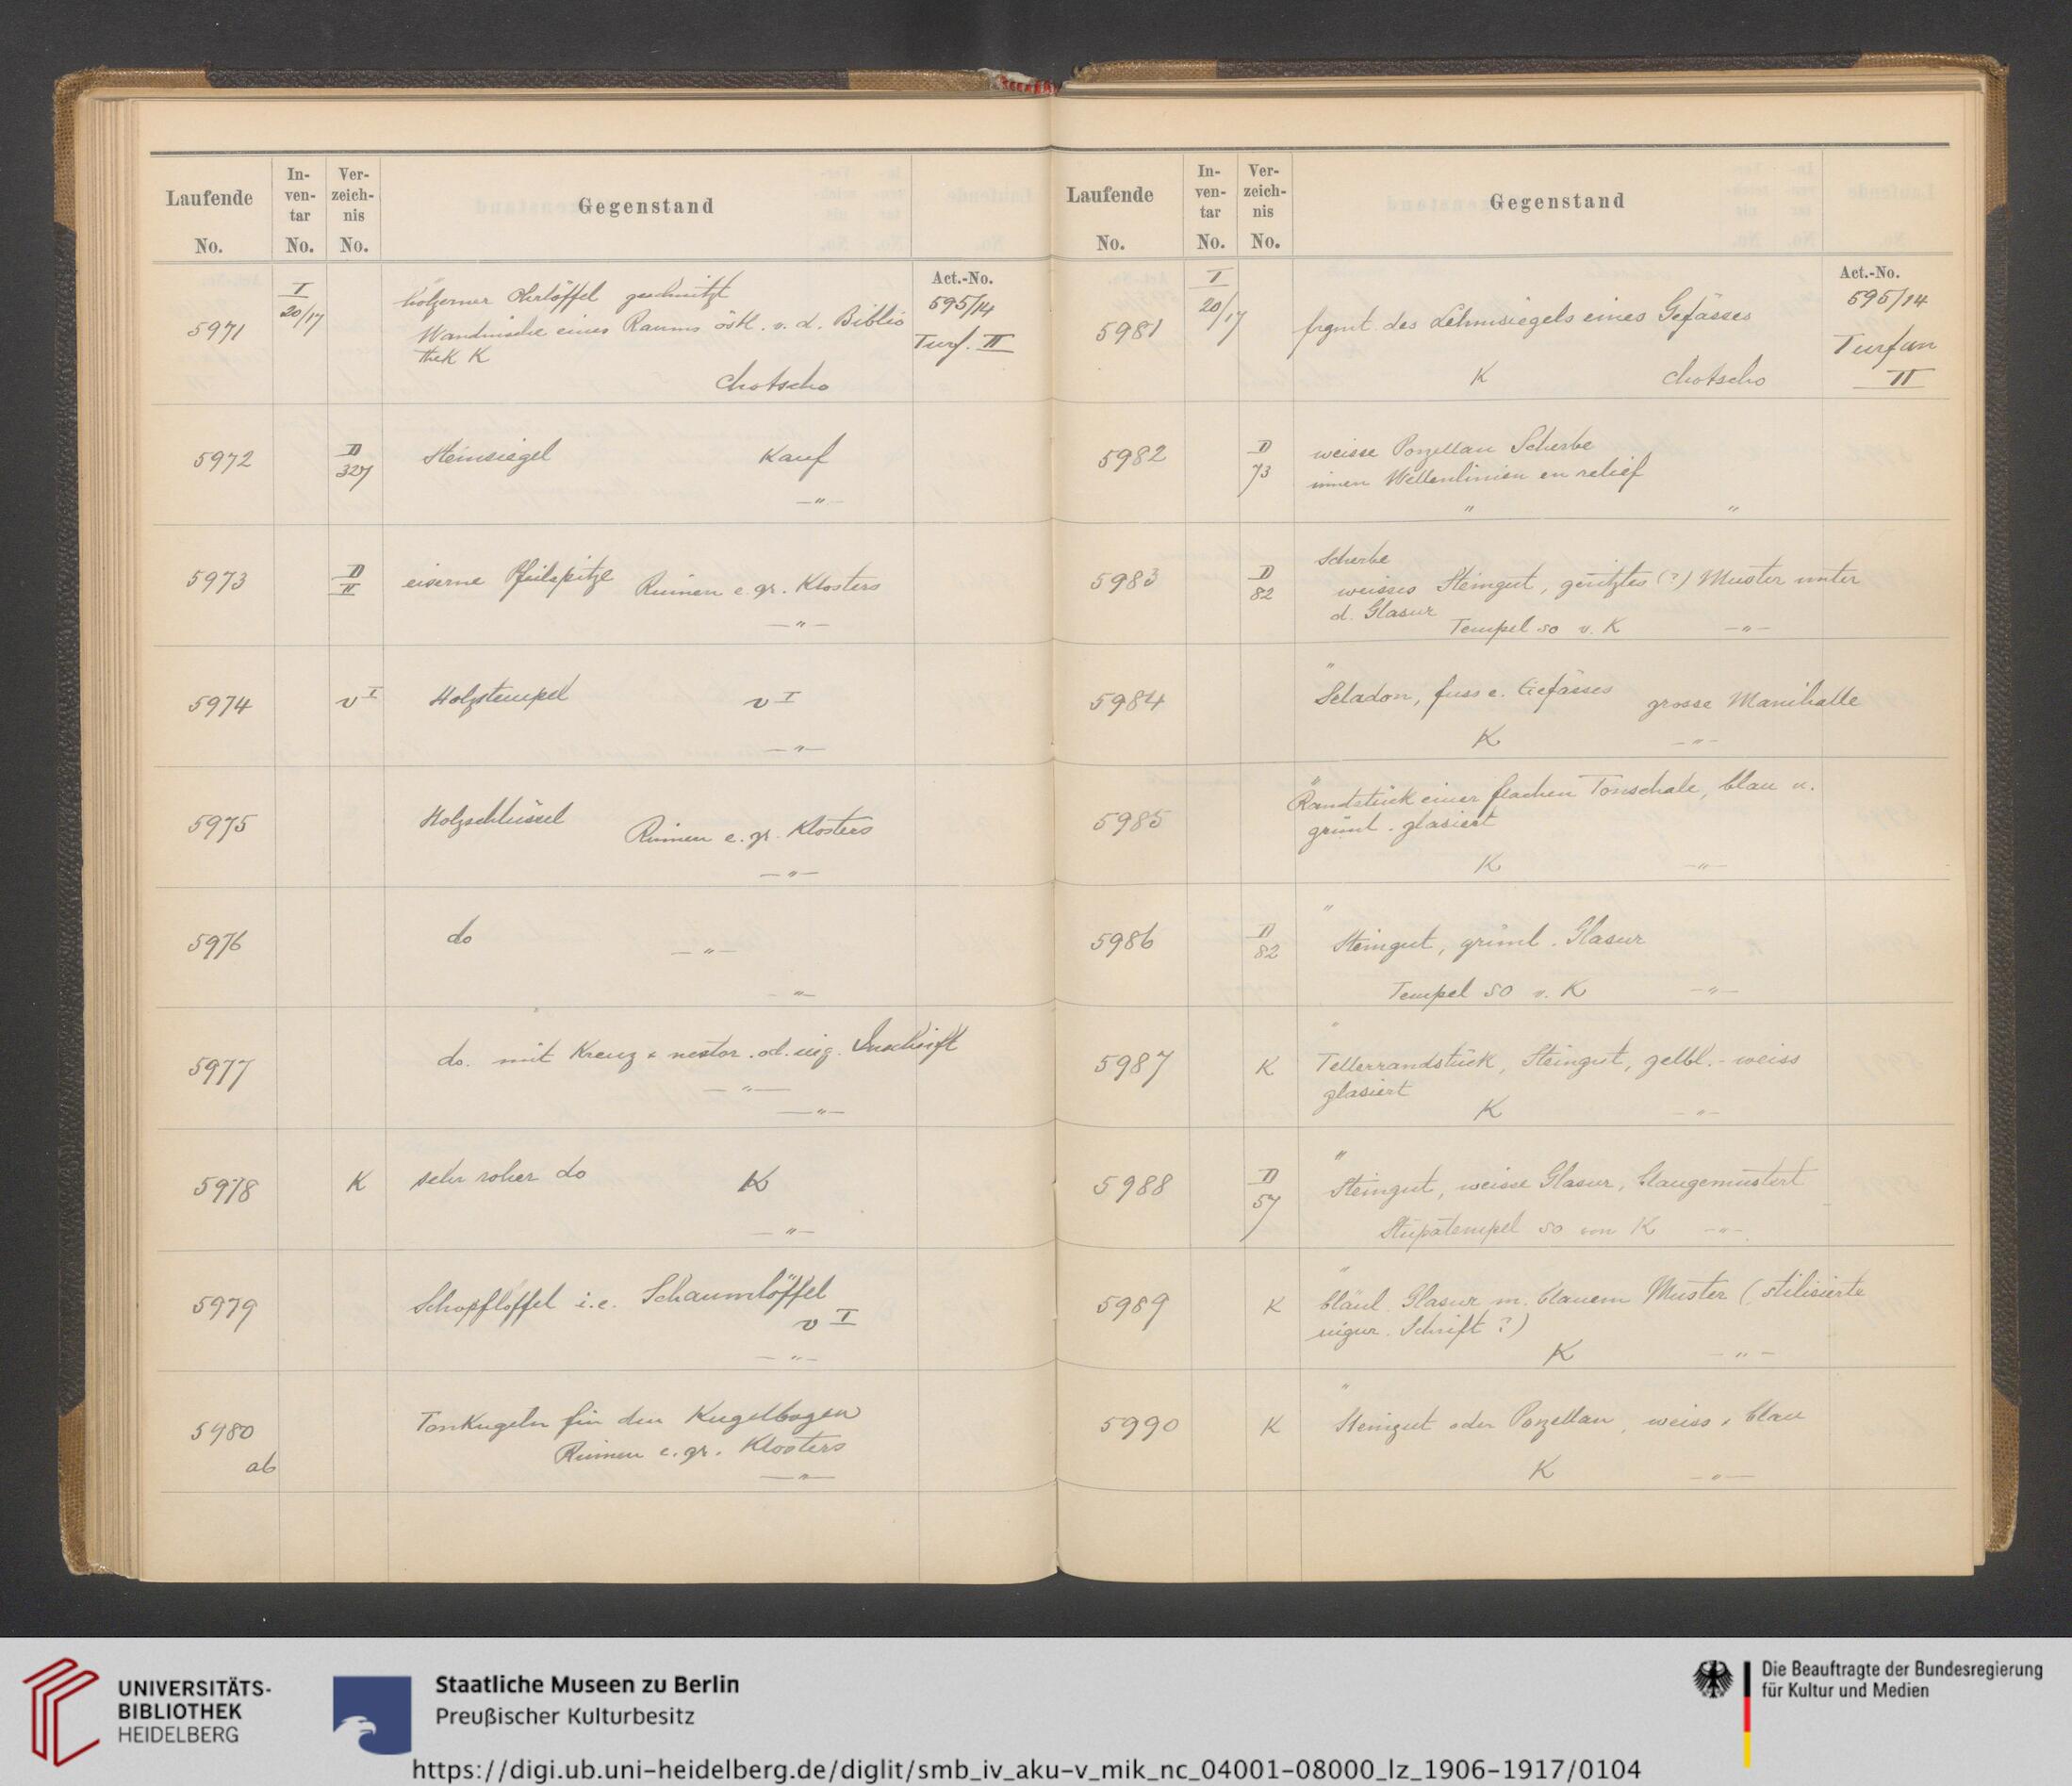 Laufende
No.
In-
ven-
tar
No.
Ver-
zeich-
nis
No.
Gegenstand
Act.-No.
595/14
Turf. II
5971
I
20/17
hölzerner Ohrlöffel geschnitzt
Wandnische eines Raums östl. v. d. Biblio
thek K
Chotscho
5972
D
327
Steinsiegel Kauf
—"—
5973
D
II
eiserne Pfeilspitze Ruinen e. gr. Klosters
—"—
5974
v I
Holzstempel v I
—"—
5975
Holzschlüssel Ruinen e. gr. Klosters
—"—
5976
do —"—
—"—
5977
do. mit Kreuz & nestor. od. uig. Inschrift
—"—
—"—
5978
K
sehr roher do K
—"—
5979
Schopflöffel i.e. Schaumlöffel
v I
—"—
5980
ab
Tonkugeln für den Kugelbogen
Ruinen e. gr. Klosters
—"—
Laufende
No.
In-
ven-
tar
No.
Ver-
zeich-
nis
No.
Gegenstand
Act.-No.
595/14
Turfan
II
5981
I
20/17
frgmt. des Lehmsiegels eines Gefässes
K Chotscho
5982
D
73
weisse Porzellan Scherbe
innen Wellenlinien en relief
" "
5983
D
82
Scherbe
weisses Steingut, geritztes (?) Muster unter
d. Glasur
Tempel so v. K —"—
5984
"
Seladon, fuss e. Gefässes grosse Manihalle
K —"—
5985
"
Randstück einer flachen Tonschale, blau u.
grünl. glasiert
K —"—
5986
D
82
"
Steingut, grünl. Glasur
Tempel SO v. K —"—
5987
K
"
Tellerrandstück, Steingut, gelbl.-weiss
glasiert
K —"—
5988
D
57
"
Steingut, weisse Glasur, blaugemustert
Stupatempel so von K —"—
5989
K
"
bläul. Glasur m. blauem Muster (stilisierte
uigur. Schrift?)
K —"—
5990
K
"
Steingut oder Porzellan, weiss & blau
K —"—
UNIVERSITÄTS-
BIBLIOTHEK
HEIDELBERG
Staatliche Museen zu Berlin
Preußischer Kulturbesitz
Die Beauftragte der Bundesregierung
für Kultur und Medien
https://digi.ub.uni-heidelberg.de/diglit/smb_iv_aku-v_mik_nc_04001-08000_lz_1906-1917/0104